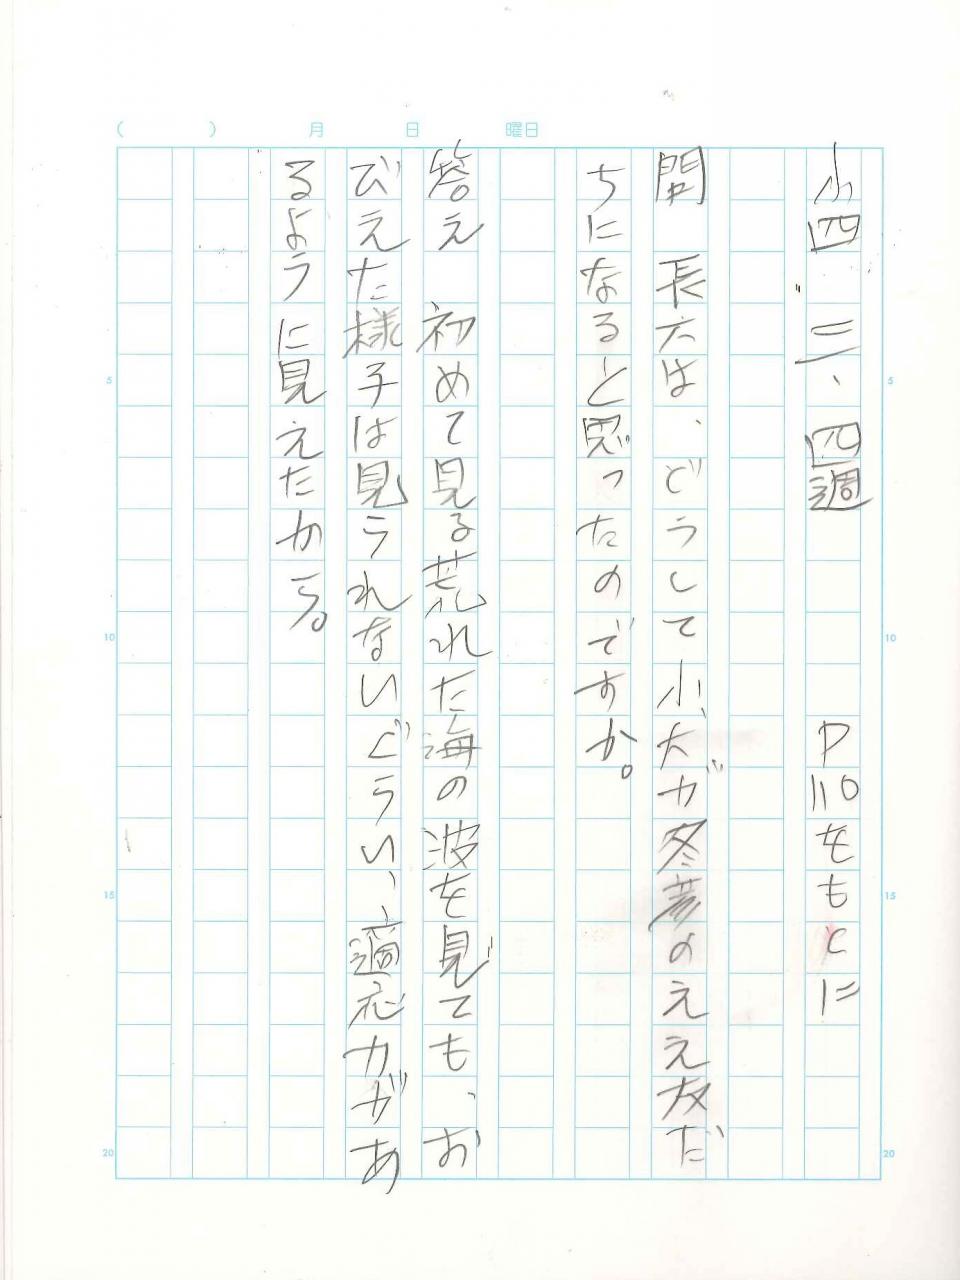 (　　)　月　日　曜日
小四　三、四週　　　　P110をもとに
問　長六は、どうして小犬が冬彦のええ友だ
ちになると思ったのですか。
答え　初めて見る荒れた海の波を見ても、お
びえた様子は見うれないぐらい、適応力があ
るように見えたから。
5
10
15
20
5
10
15
20